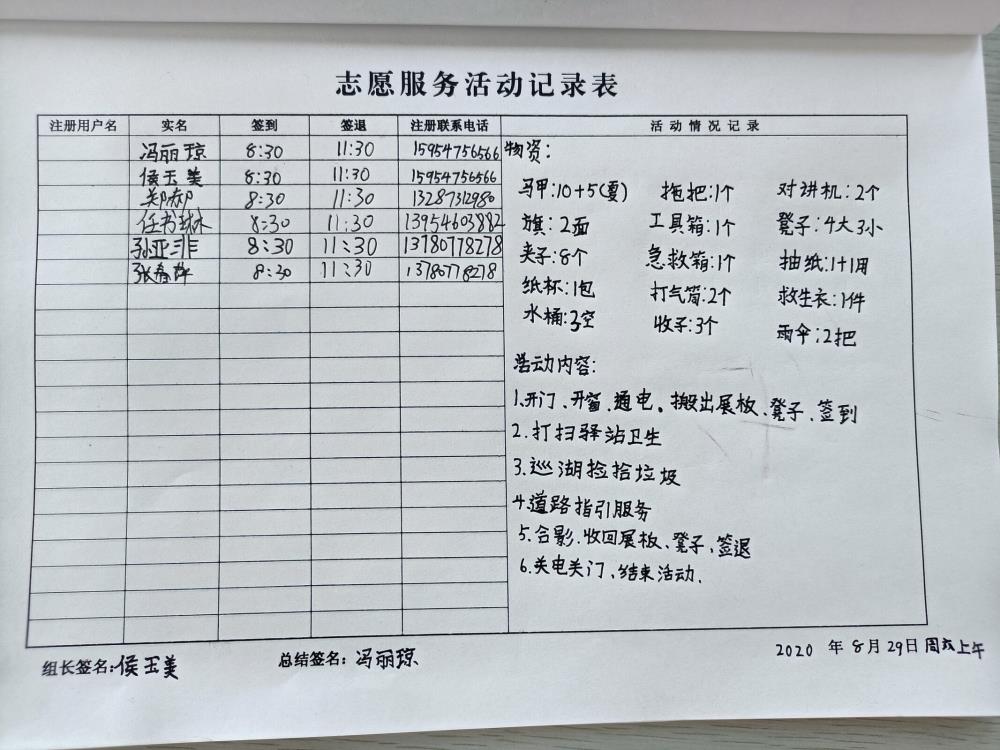 志愿服务活动记录表
注册用户名 实名 签到 签退 注册联系电话 活动情况记录
冯丽琼 8:30 11:30 15954756566
侯玉美 8:30 11:30 15954756566
郑郝 8:30 11:30 13287312980
任书琳 8:30 11:30 13954603882
孙亚菲 8:30 11:30 13780778278
张春萍 8:30 11:30 13780778278
物资:
马甲:10+5(夏) 拖把:1个 对讲机:2个
旗:2面 工具箱:1个 凳子:4大3小
夹子:8个 急救箱:1个 抽纸:1+1用
纸杯:1包 打气筒:2个 救生衣:1件
水桶:3空 收子:3个 雨伞:2把
活动内容:
1.开门、开窗、通电。搬出展板、凳子、签到
2.打扫驿站卫生
3.巡湖捡拾垃圾
4.道路指引服务
5.合影.收回展板、凳子、签退
6.关电关门、结束活动.
组长签名:侯玉美 总结签名:冯丽琼 2020 年 8月29日周六上午